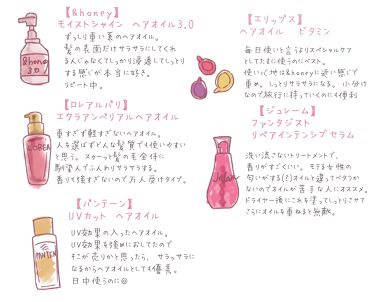 【&honey】
モイストシャイン ヘアオイル3.0
ずっしり重い系のヘアオイル。
髪の表面だけサラサラにしてくれ
る人じゃなくてしっかり浸透してしっとり
する感じが本当に好き。
リピート中。
&honey
3.0
【ロレアルパリ】
エクラアンペリアルヘアオイル
重すぎず軽すぎないヘアオイル。
人を選ばずどんな髪質でも使いやすい
と思う。スクーッと髪の毛全体に
馴染んでふんわりサラサラする。
香りも強すぎないので万人受けタイプ。
L'OREAL
【パンテーン】
UVカット ヘアオイル
UV効果の入ったヘアオイル。
UV効果を強めにおしてたので
そこが売りかと思ったら、サラッサラに
なるからヘアオイルとしても優秀。
日中使うのに◎
PANTEN
【エリップス】
ヘアオイル ビタミン
毎日使いと言うよりスペシャルケア
としてたまに使うのにベスト。
使い心地は&honeyに近い感じで
重め。しっとりサラサラになる。小分け
なので旅行に持っていくのにも便利
【ジュレーム】
ファンタジスト
リペアインテンシブ セラム
洗い流さないトリートメントで、
香りがすごくいい。モテる女性の
匂いがする(?)オイルと違ってベタつか
ないのでオイルが苦手な人にオススメ。
ドライヤー後にこれを塗ってしっとりさせて
さらにオイルを重ねると無敵。